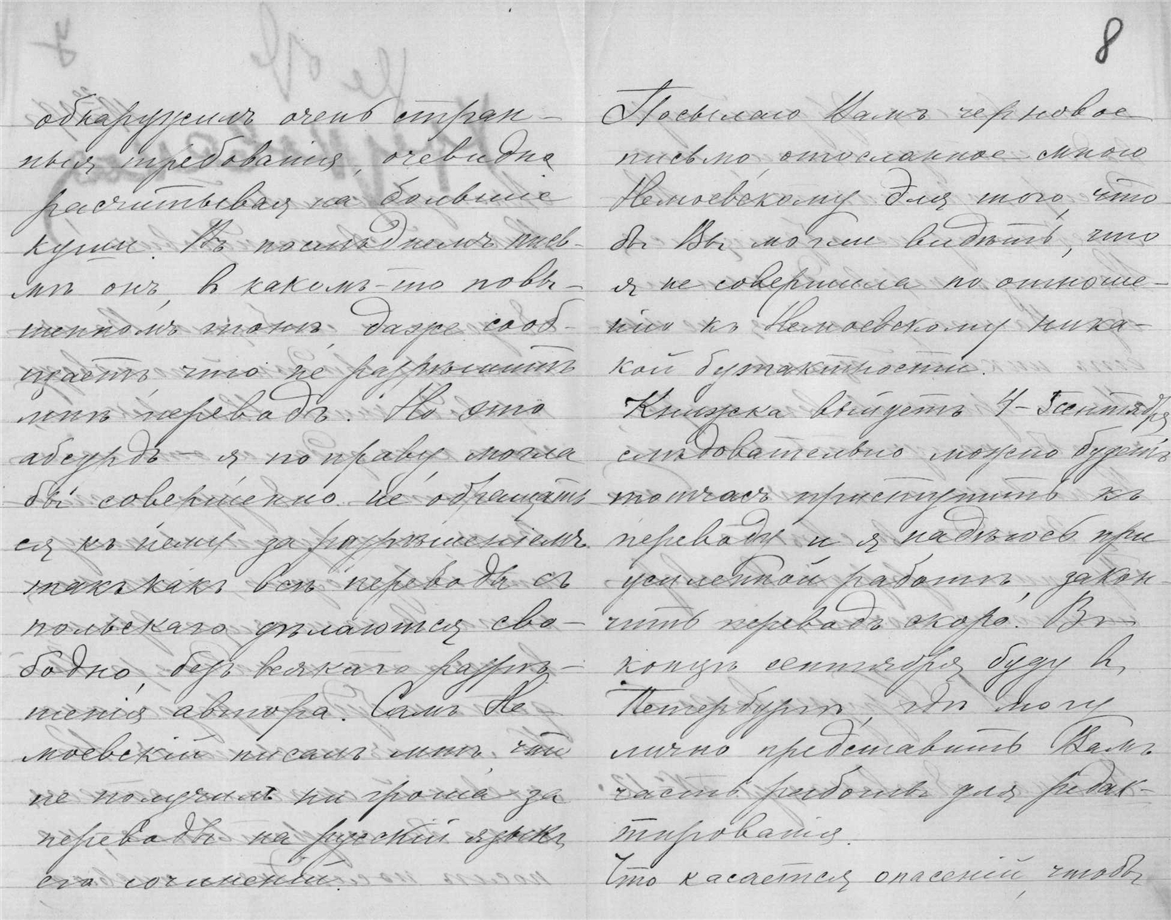 обнаружилъ очень стран-
ныя требованія, очевидно
расчитывая на большіе
куши. Въ последнемъ пись-
мѣ онъ, въ какомъ-то повы-
шенномъ тонѣ даже сооб-
щаетъ, что не разрѣшитъ
мнѣ переводъ. Но это
абсурдъ - я по праву могла
бы совершенно не обращать
ся къ нему за разрѣшеніемъ
такъ какъ всѣ переводы съ
польскаго дѣлаются сво-
бодно, безъ всякаго разрѣ-
шенія автора. Самъ Не-
моевскій писалъ мнѣ, что
не получилъ ни гроша за
переводы на русскій языкъ
его сочиненій.
8
Посылаю Вамъ черновое
письмо отосланное мною
Немоевскому для того, что
бы Вы могли видѣть, что
я не совершила по отноше-
нію къ Немоевскому ника-
кой безтактности.
Книжка выйдетъ 4-5 сентября
слѣдовательно можно будетъ
тотчасъ приступить къ
переводу и я надѣюсь при
усиленной работѣ, закон
чить переводъ скоро. Въ
концѣ сентября буду въ
Петербургѣ, гдѣ могу
лично представить Вамъ
часть работы для редак-
тированія.
Что касается опасеній, чтобы